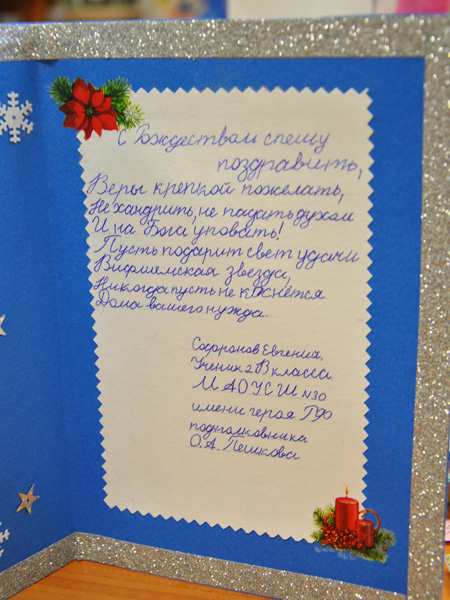 С Рождеством спешу
поздравить,
Веры крепкой пожелать,
Не хандрить, не падать духом
И на Бога уповать!
Пусть подарит свет удачи
Вифлиемская звезда,
Никогда пусть не кжнётся
Дома вашего нужда.
Сафронов Евгений.
Ученик 2В класса
МАОУСШ №30
имени героя РФ
подполковника
О.А. Пешкова